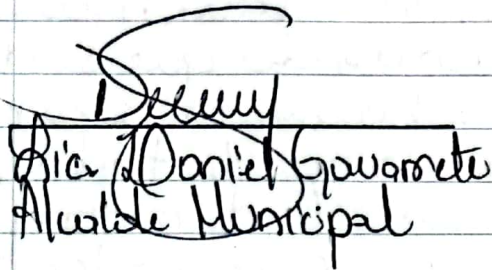 Lic. Daniel Gavarrete
Alcalde Municipal